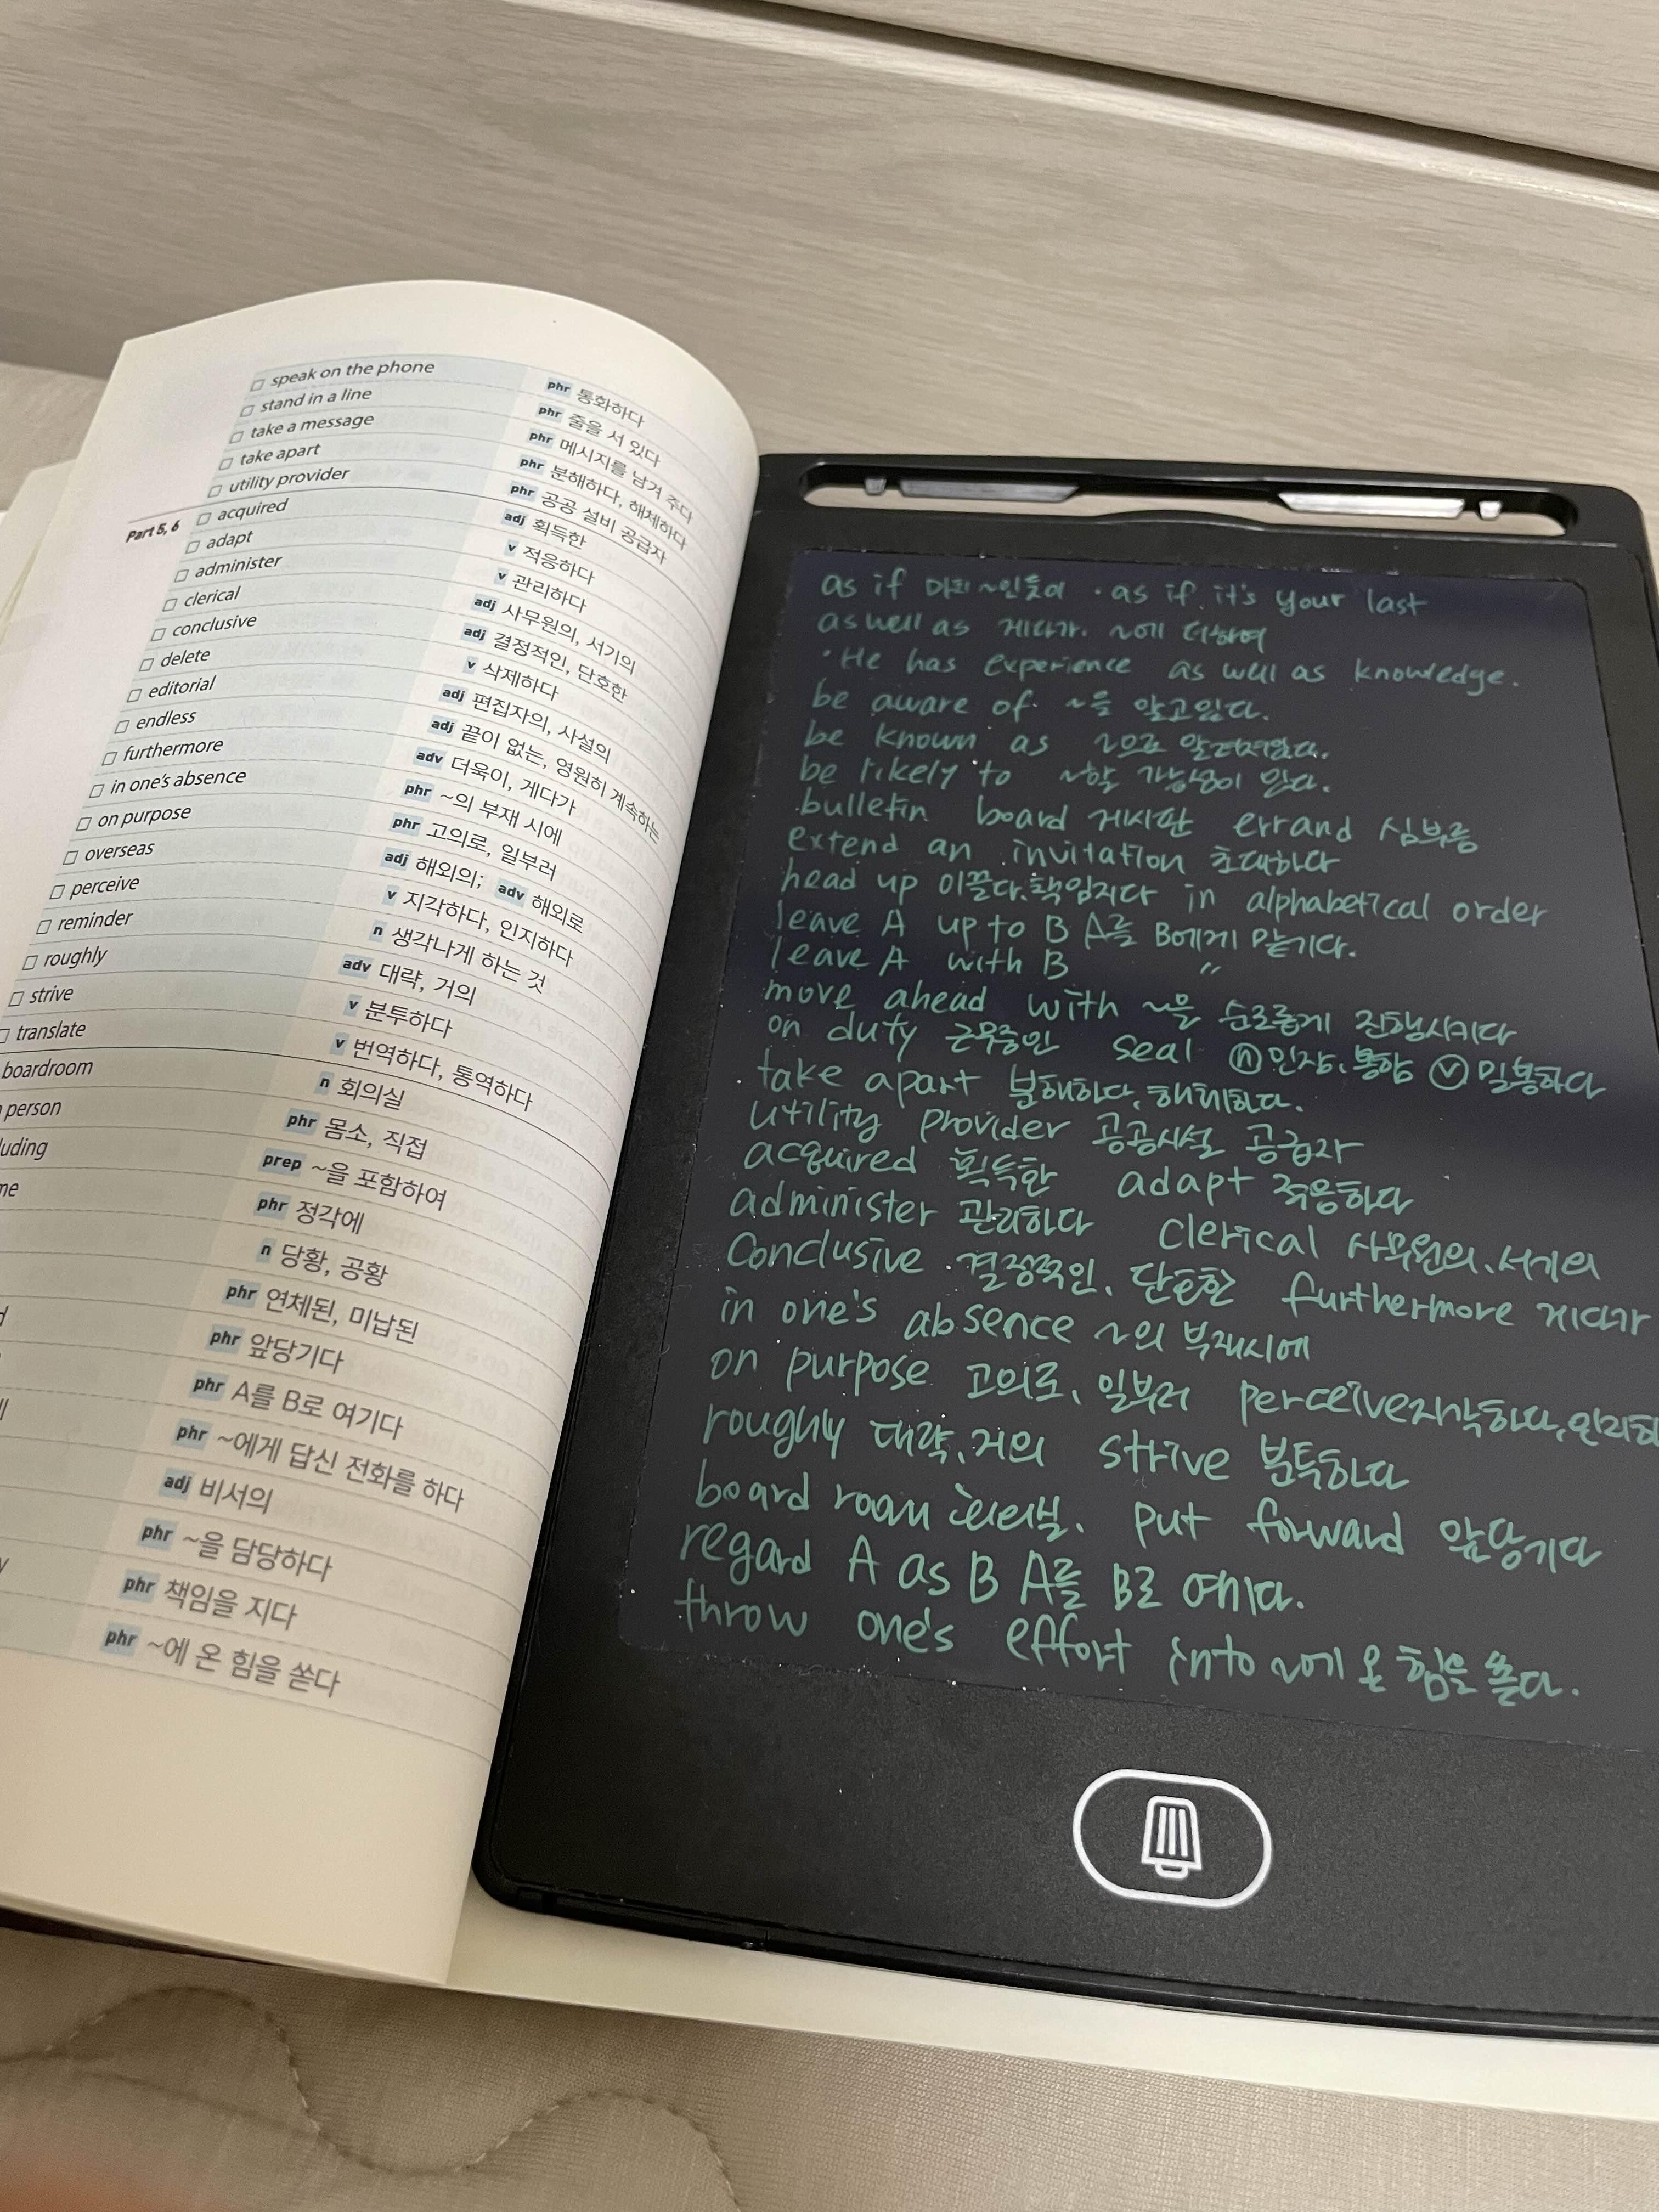 ☐ speak on the phone phr 통화하다
☐ stand in a line phr 줄을 서 있다
☐ take a message phr 메시지를 남겨 주다
☐ take apart phr 분해하다, 해체하다
☐ utility provider phr 공공 설비 공급자
Part 5, 6 ☐ acquired adj 획득한
☐ adapt v 적응하다
☐ administer v 관리하다
☐ clerical adj 사무원의, 서기의
☐ conclusive adj 결정적인, 단호한
☐ delete v 삭제하다
☐ editorial adj 편집자의, 사설의
☐ endless adj 끝이 없는, 영원히 계속하는
☐ furthermore adv 더욱이, 게다가
☐ in one's absence phr ~의 부재 시에
☐ on purpose phr 고의로, 일부러
☐ overseas adj 해외의; adv 해외로
☐ perceive v 지각하다, 인지하다
☐ reminder n 생각나게 하는 것
☐ roughly adv 대략, 거의
☐ strive v 분투하다
☐ translate v 번역하다, 통역하다
boardroom n 회의실
person phr 몸소, 직접
luding prep ~을 포함하여
me phr 정각에
n 당황, 공황
phr 연체된, 미납된
phr 앞당기다
phr A를 B로 여기다
phr ~에게 답신 전화를 하다
adj 비서의
phr ~을 담당하다
phr 책임을 지다
phr ~에 온 힘을 쏟다
as if 마치 ~인듯이 · as if it's your last
as well as 게다가. ~에 더하여
· He has experience as well as knowledge.
be aware of ~을 알고있다.
be known as ~으로 알려져있다.
be likely to ~할 가능성이 있다.
bulletin board 게시판 errand 심부름
extend an invitation 초대하다
head up 이끌다. 책임지다 in alphabetical order
leave A up to B A를 B에게 맡기다.
leave A with B 〃
move ahead with ~을 순조롭게 진행시키다
on duty 근무중인 seal ⓝ 인장, 봉함 ⓥ 밀봉하다
take apart 분해하다, 해체하다.
utility provider 공공시설 공급자
acquired 획득한 adapt 적응하다
administer 관리하다 clerical 사무원의, 서기의
Conclusive 결정적인, 단호한 furthermore 게다가
in one's absence ~의 부재시에
on purpose 고의로, 일부러 perceive 지각하다, 인지하
roughly 대략, 거의 strive 분투하다
board room 회의실. put forward 앞당기다
regard A as B A를 B로 여기다.
throw one's effort into ~에 온 힘을 쏟다.